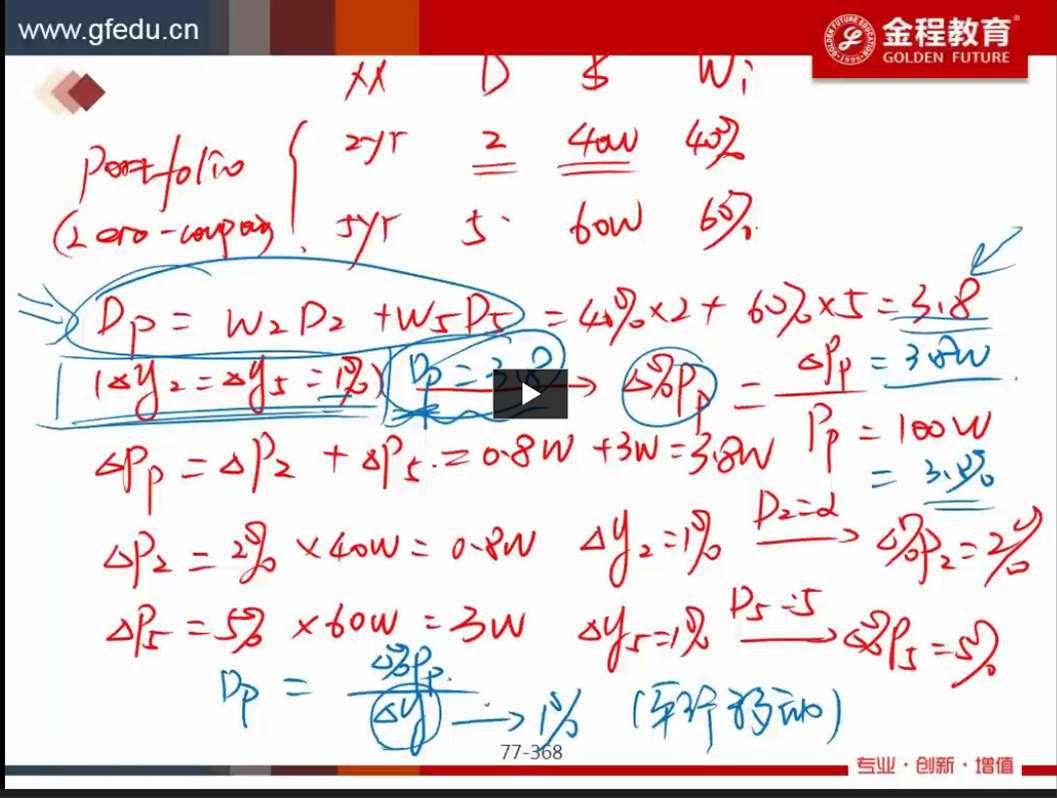 www.gfedu.cn
金程教育
GOLDEN FUTURE
D $ Wi
Portfolio
2yr 2 40W 40%
(Zero-coupon)
5yr 5 60W 60%
Dp = W2D2 + W5D5 = 40% × 2 + 60% × 5 = 3.8
(Δy2 = Δy5 = 1%) Dp = 3.8 → Δ%Pp = ΔPp = 3.8W
Pp = 100W
= 3.8%
ΔPp = ΔP2 + ΔP5 = 0.8W + 3W = 3.8W
ΔP2 = 2% × 40W = 0.8W Δy2 = 1% D2=2 → Δ%P2 = 2%
ΔP5 = 5% × 60W = 3W Δy5 = 1% D5=5 → Δ%P5 = 5%
Dp = Δ%Pp / Δy → 1% (平行移动)
77-368
专业·创新·增值